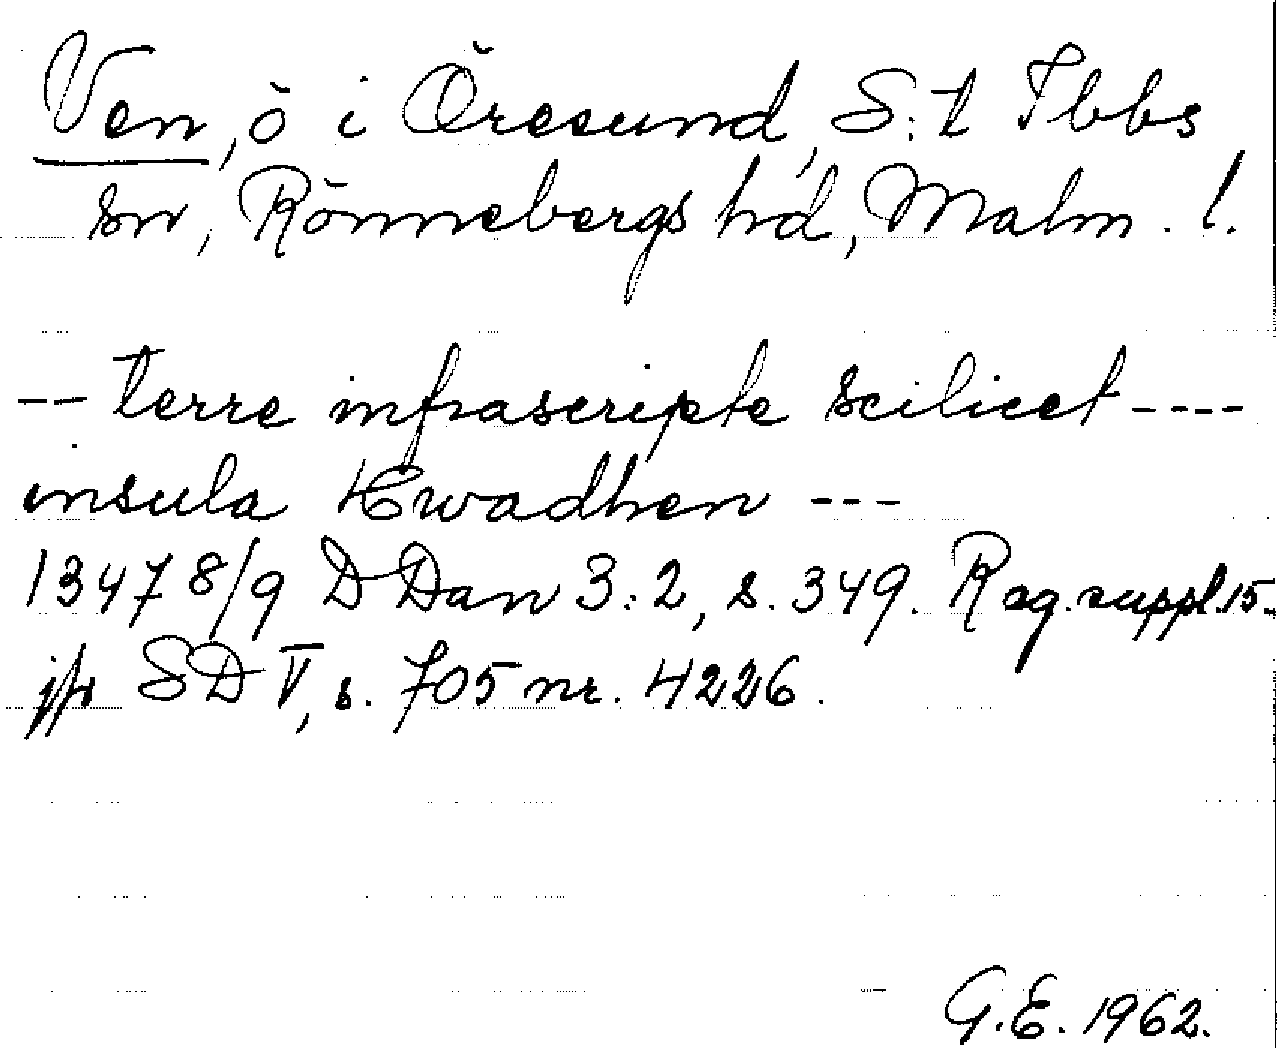 Ven, ö i Öresund, S:t Ibbs
sn, Rönnebergs hd, Malm. l.
-- terre infrascripte scilicet ----
insula Hwadhen ---
1347 8/9 DDan 3:2, s. 349. Rag. suppl. 15.
jfr SD V, s. 705 nr. 4226.
G.E. 1962.